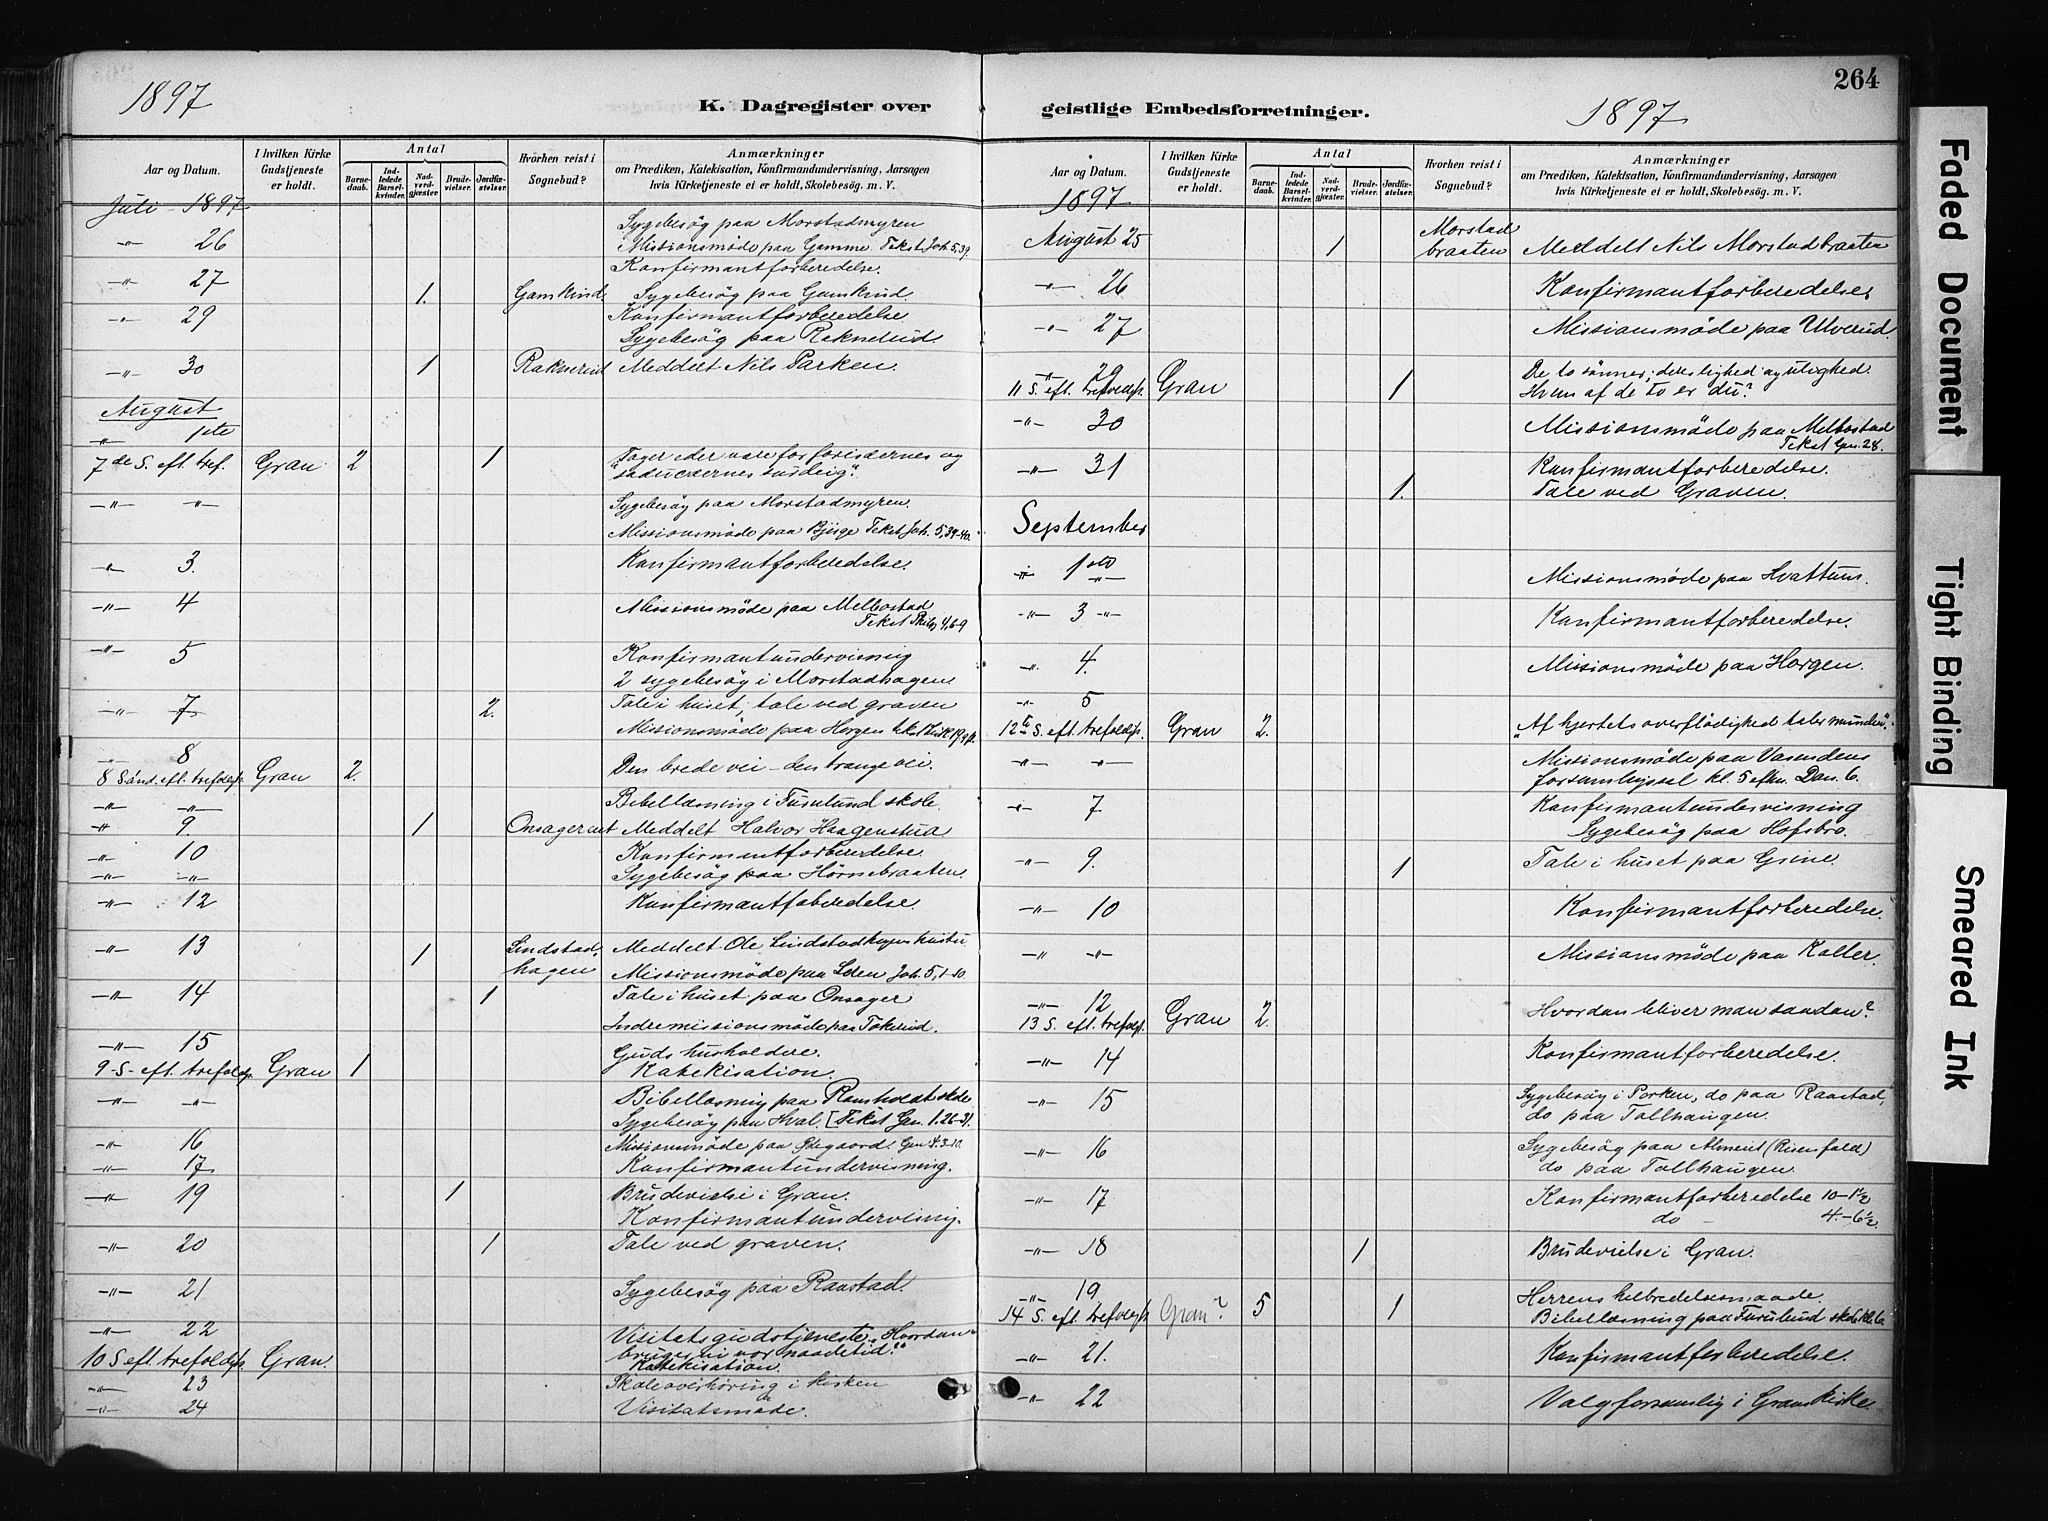 264
1897
K. Dagregister over
geistlige Embedsforretninger.
1897
Aar og Datum.
I hvilken Kirke Gudstjeneste er holdt.
Antal
Barnedaab.
Indledede Barselkvinder.
Nadverdgjæster.
Brudevielser.
Jordfæstelser.
Hvorhen reist i Sognebud?
Anmærkninger
om Prædiken, Katekisation, Konfirmandundervisning, Aarsagen
hvis Kirketjeneste ei er holdt, Skolebesög. m. V.
Juli 1897
Sygebesög paa Morstadmyren
-"- 26 Missionsmöde paa Gamme Tekst Joh. 5,39.
Konfirmantforberedelse.
-"- 27 1. Gamkind. Sygebesög paa Gamkrud.
-"- 29 Konfirmantforberedelse
Sygebesög paa Raknerud
-"- 30 1 Raknerud Meddelt Nils Parken.
August
-"- 1ste
7de S. eft. tref. Gran 2 1 "Tager eder vare for farisæernes og
saducæernes surdeig".
-"- -"- Sygebesög paa Morstadmyren.
Missionsmöde paa Bjürge Tekst Joh. 5,39-40.
-"- 3. Konfirmantforberedelse.
-"- 4 Missionsmöde paa Melbostad
Tekst Philip 4,6-9
-"- 5 Konfirmantundervisnig
2 sygebesög i Morstadhagen
-"- 7 2. Tale i huset, tale ved graven
Missionsmöde paa Horgen
-"- 8 Den brede vei - den trange vei
8 Sönd. eft. trefoldigh. Gran 2.
-"- -"- Bibellæsning i Furulund skole.
-"- 9. 1 Onsagereiet Meddelt Halvor Haagenstua
-"- 10 Konfirmantforberedelse.
-"- -"- Sygebesög paa Hörnebraaten.
-"- 12 Konfirmantfoberedelse.
-"- 13 1 Lindstad- Meddelt Ole Lindstadhagens hustru
hagen Missionsmöde paa Joh. 5,1-10
-"- 14 1 Tale i huset paa Onsager
Indremissionsmöde paa Tokerud.
-"- 15 Guds husholdere.
9-S-eft. trefoldigh. Gran 1 Katekisation.
-"- -"- Bibellæsning paa Ramholdt skole
Sygebesög paa Hval. [Tekst Gen. 1.26-31.
-"- 16 Missionsmöde paa Ødegaard. Gen 4.3-10.
-"- 17 Konfirmantundervisning.
-"- 19 1 Brudevielse i Gran.
Konfirmantundervisnig.
-"- 20 1 Tale ved graven.
-"- 21 Sygebesög paa Raastad.
-"- 22 Visitatsgudstjeneste "Hvordan
10 S eft trefoldigh. Gran. bruger vi vor naadetid?"
Katekisation.
-"- 23 Skoleoverhöring i kirken
-"- 24 Visitatsmöde.
Aar og Datum.
I hvilken Kirke Gudstjeneste er holdt.
Antal
Barnedaab.
Indledede Barselkvinder.
Nadverdgjæster.
Brudevielser.
Jordfæstelser.
Hvorhen reist i Sognebud?
Anmærkninger
om Prædiken, Katekisation, Konfirmandundervisning, Aarsagen
hvis Kirketjeneste ei er holdt, Skolebesög. m. V.
1897
August 25 1 Morstad braaten Meddelt Nils Morstadbraaten
-"- 26 Konfirmantforberedelse.
-"- 27 Missionsmöde paa Ulverud.
-"- 29 De to sönner; deres lighed og ulighed.
11 S. eft. trefoldigh. Gran 1 Hvem af de to er du?
-"- 30 Missionsmöde paa Melbostad
Tekst Gen. 28.
-"- 31 Konfirmantforberedelse.
1. Tale ved Graven.
September
-"- 1ste -"- Missionsmöde paa Hvattum.
-"- 3 -"- Konfirmantforberedelse.
-"- 4. Missionsmöde paa Horgen.
-"- 5
12te S. eft. trefoldigh. Gran 2. "Af hjertets overflödighed taler munden".
-"- -"- Missionsmöde paa Vasendens
forsamlingssal kl. 5 eftm. Dan. 6.
-"- 7 Konfirmantundervisning
Sygebesög paa Hofsbro.
-"- 9. 1 Tale i huset paa Grine.
-"- 10 Konfirmantforberedelse.
-"- -"- Missionsmöde paa Kolter.
-"- 12 Hvordan bliver man saadan?
13 S. eft. trefoldigh. Gran 2.
-"- 14 Konfirmantforberedelse.
-"- 15 Sygebesög i Parken, do paa Raastad,
do paa Tollhaugen.
-"- 16 Sygebesög paa Almeiet (Risenfald)
do paa Tollhaugen.
-"- 17 Konfirmantforberedelse 10-1½
do - 4.-6½.
-"- 18 1 Brudevielse i Gran.
-"- 19 Herrens helbredelsesmaade.
14 S. eft. trefoldigh. Gran? 5 1 Bibellæsning paa Furulund skole kl. 6.
-"- 21. Konfirmantforberedelse.
-"- 22 Valgforsamlig i Grans kirke.
Faded Document
Tight Binding
Smeared Ink